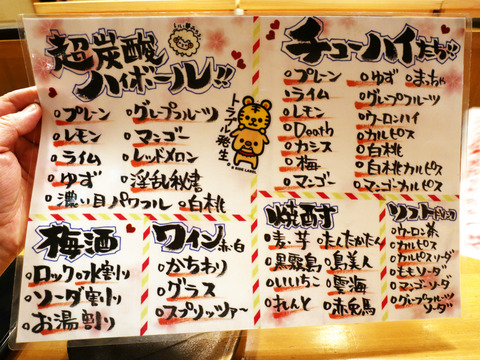 超炭酸
ハイボール!!
プレーン
レモン
ライム
ゆず
濃い目パワフル
グレープフルーツ
マンゴー
レッドメロン
淫乱秘書
白桃
トラブル発生
チューハイたち!!
プレーン
ライム
レモン
Death
カシス
梅
マンゴー
ゆず
まっちゃ
グレープフルーツ
ウーロンハイ
カルピス
白桃
白桃カルピス
マンゴーカルピス
梅酒
ロック
水割り
ソーダ割り
お湯割り
ワイン 赤・白
かちわり
グラス
スプリッツァ〜
焼酎
麦、芋
黒霧島
いいちこ
れんと
たんたかたん
島美人
雲海
赤兎馬
ソフトドリンク
ウーロン茶
カルピス
カルピスソーダ
ももソーダ
マンゴーソーダ
グレープフルーツ
ソーダ